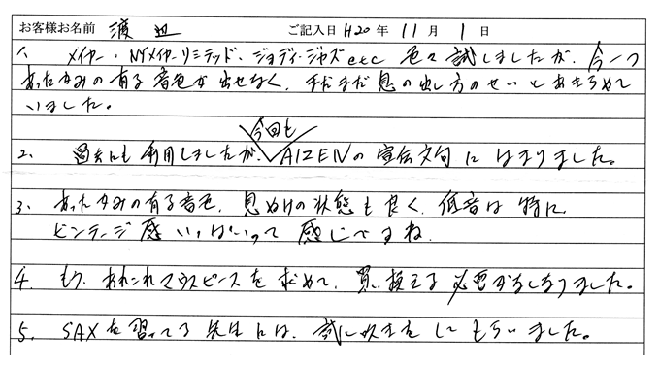 お客様お名前 渡辺 ご記入日 H20年 11月 1日
1、 メイヤー、NYメイヤーリミテッド、ジョディ・ジャズetc 色々試しましたが、今一つ
あったかみの有る音色が出せなく、まだまだ息の出し方のせいとあきらめて
いました。
今回も
2、 過去にも利用しましたが、AIZENの宣伝文句にはまりました。
3、 あったかみの有る音色、息ぬけの状態も良く、低音は特に
ビンテージ感いっぱいって感じですね。
4、 もう、あれこれマウスピースを求めて、買い換える必要がなくなりました。
5、 SAXを習ってる先生には、試し吹きをしてもらいました。